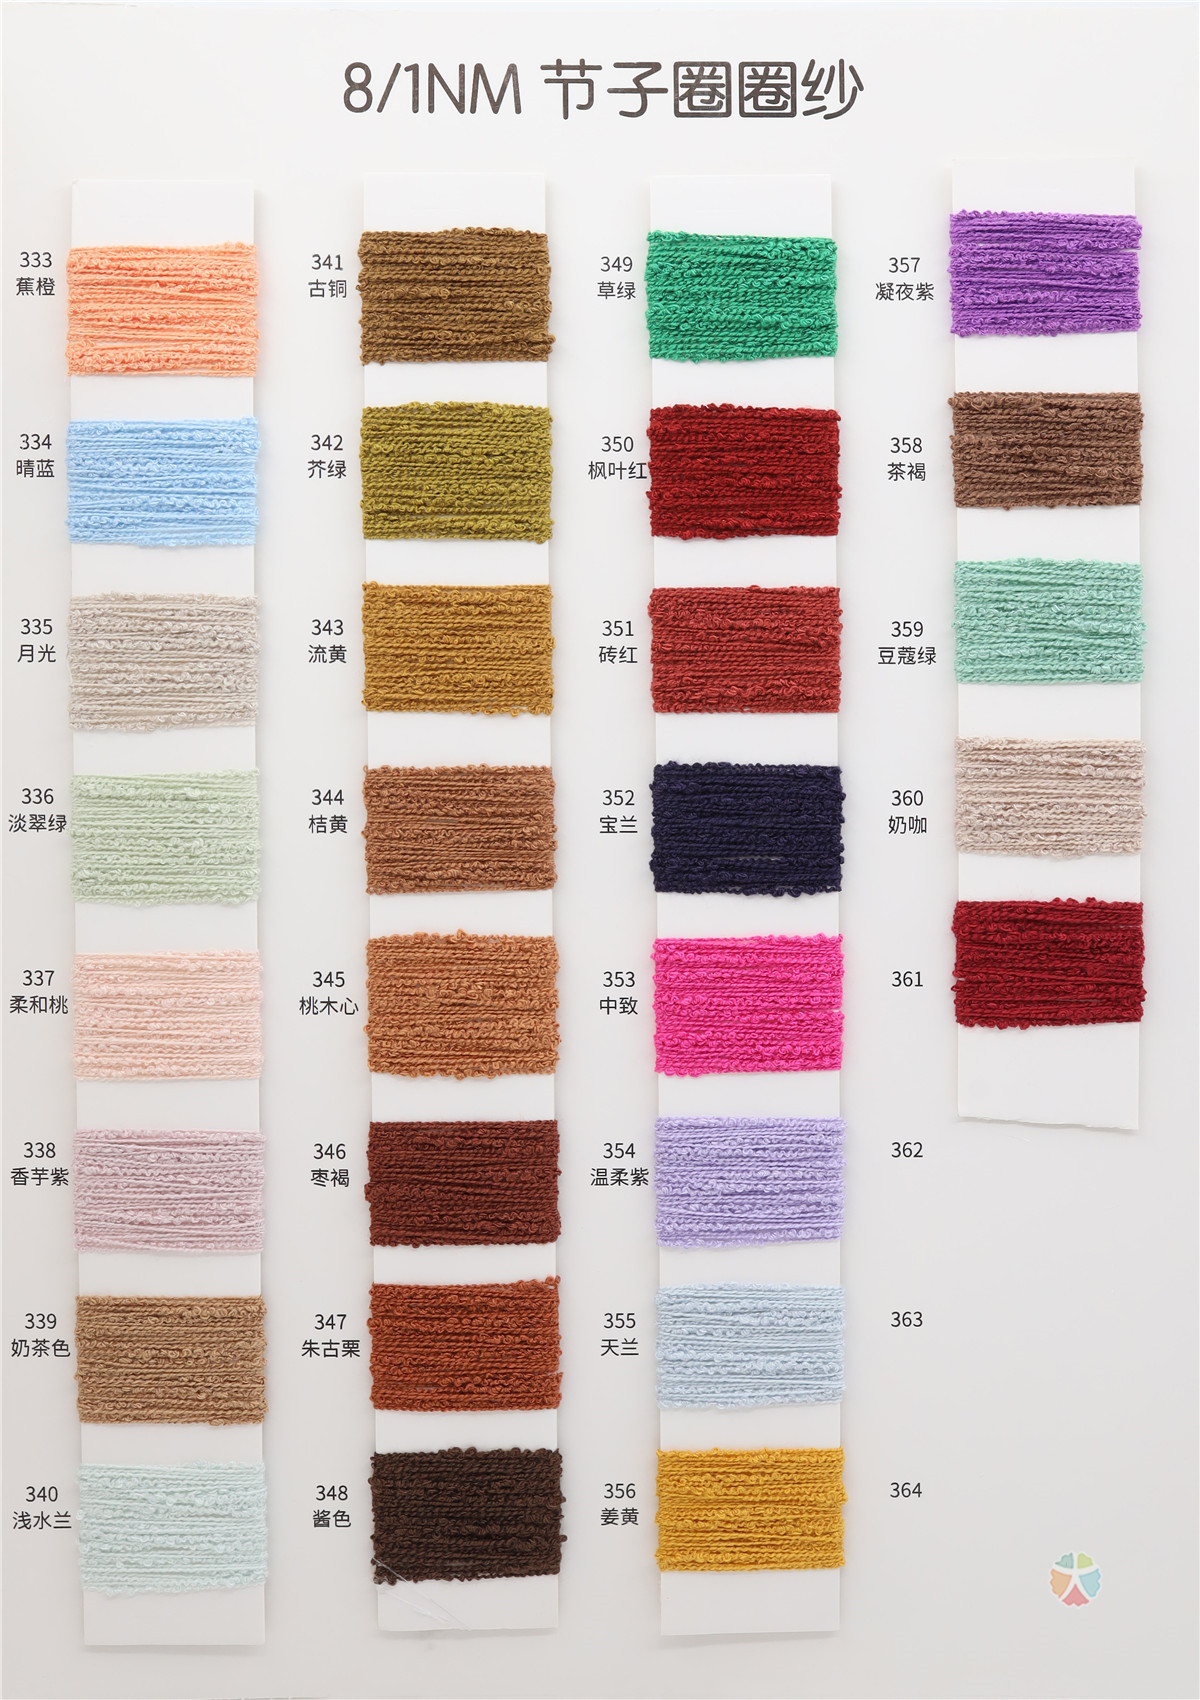 8/1NM 节子圈圈纱
333
蕉橙
334
晴蓝
335
月光
336
淡翠绿
337
柔和桃
338
香芋紫
339
奶茶色
340
浅水兰
341
古铜
342
芥绿
343
流黄
344
桔黄
345
桃木心
346
枣褐
347
朱古栗
348
酱色
349
草绿
350
枫叶红
351
砖红
352
宝兰
353
中致
354
温柔紫
355
天兰
356
姜黄
357
凝夜紫
358
茶褐
359
豆蔻绿
360
奶咖
361
362
363
364